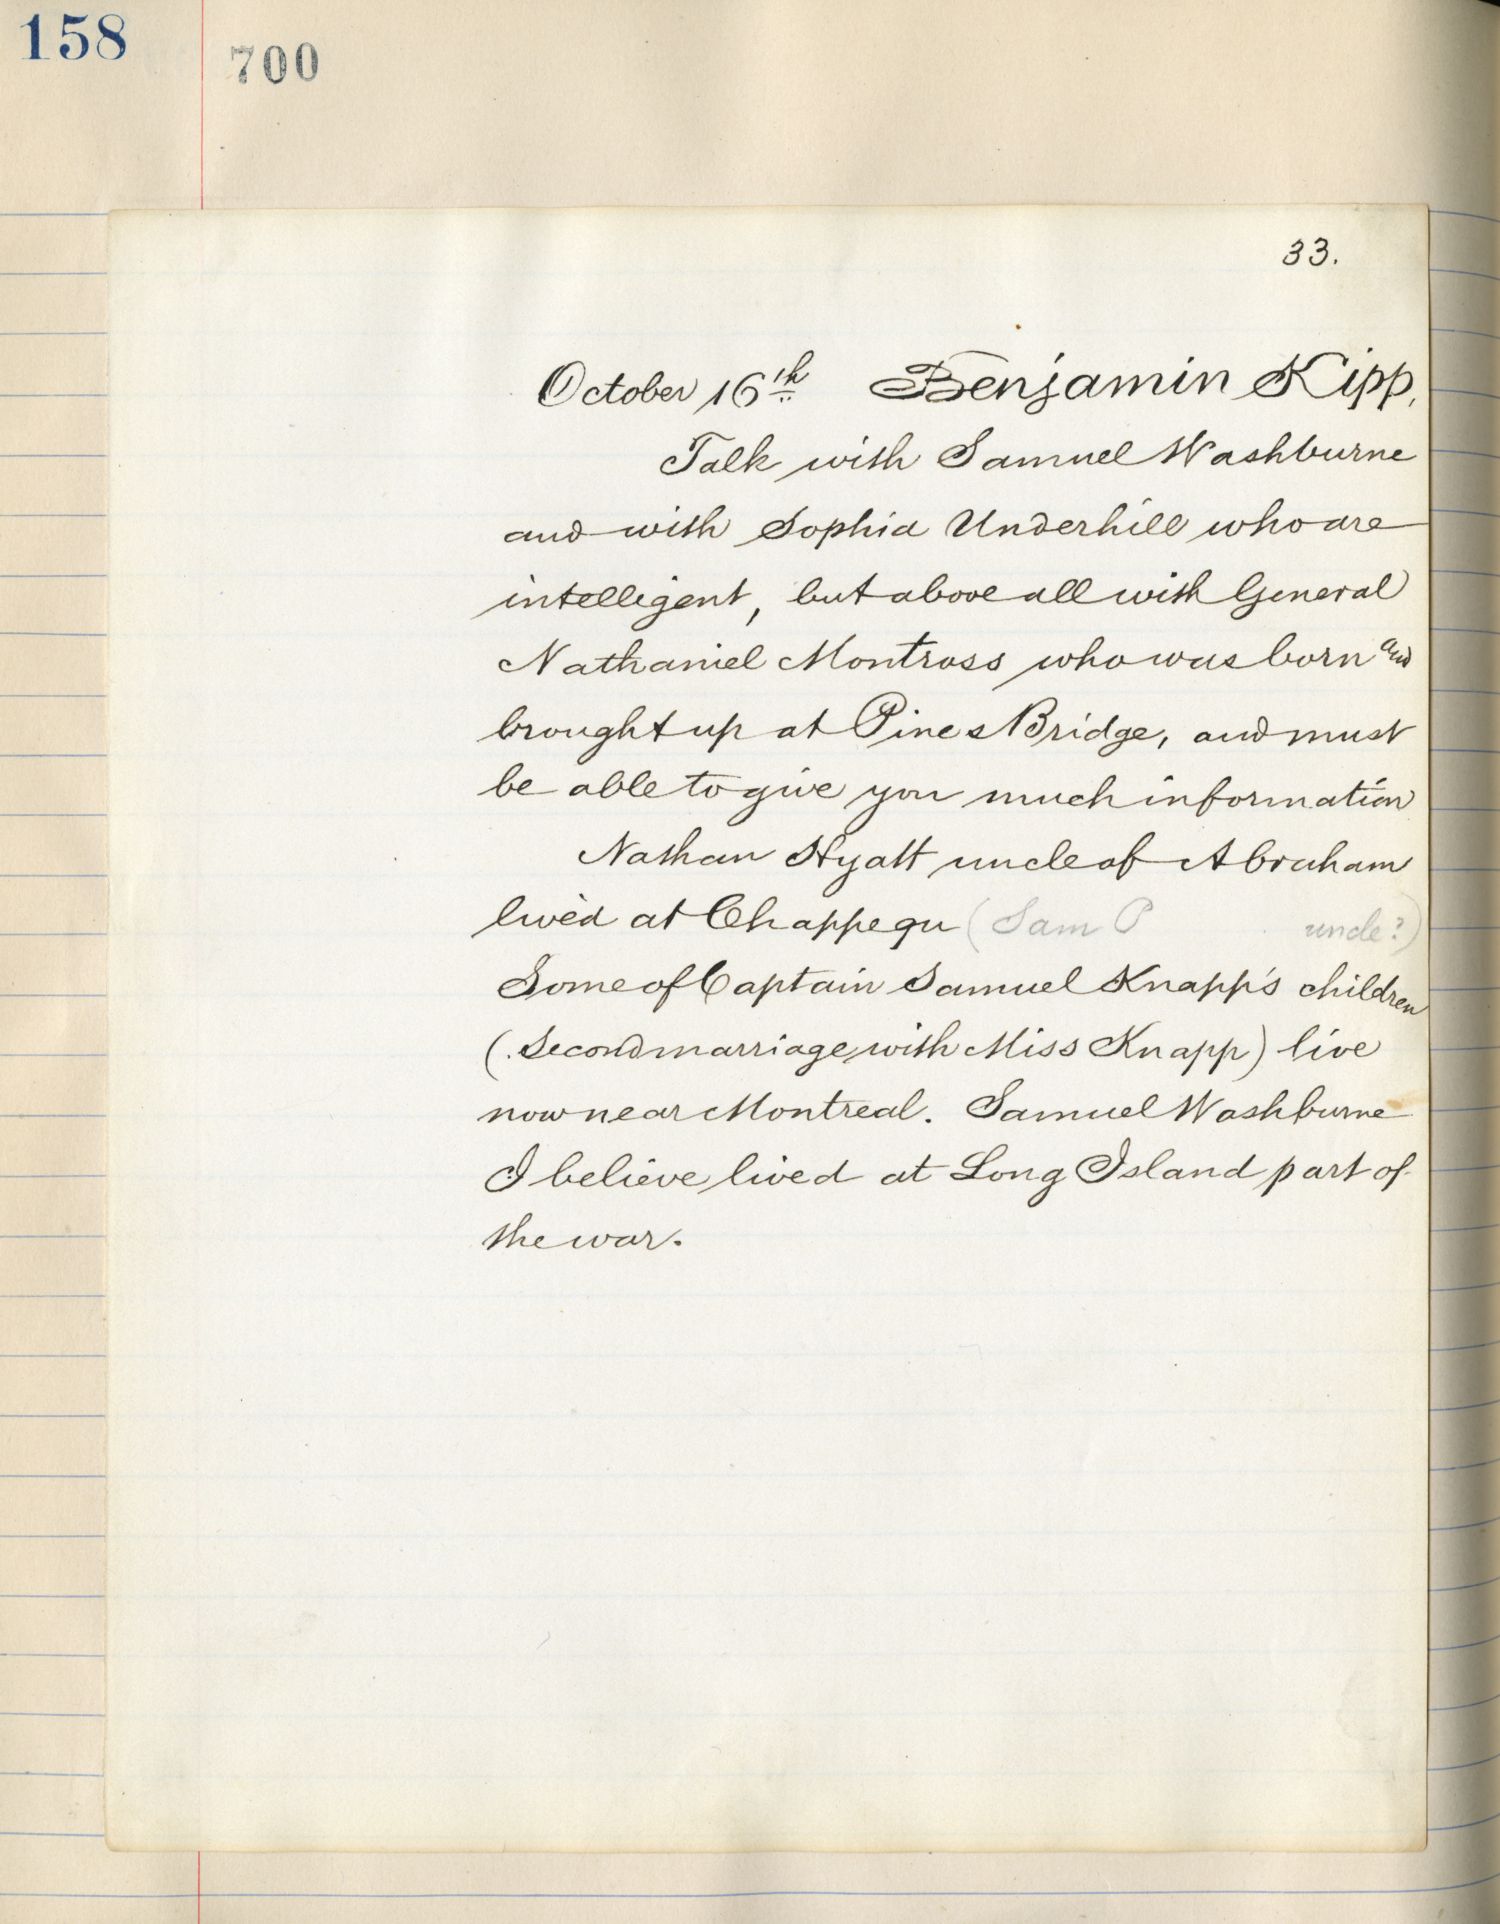 158
700
33.
October 16th Benjamin Kipp,
Talk with Samuel Washburne
and with Sophia Underhill who are
intelligent, but above all with General
Nathaniel Montross who was born and
brought up at Pines Bridge, and must
be able to give you much information
Nathan Hyatt uncle of Abraham
lived at Chappequ (Sam P uncle?)
Some of Captain Samuel Knapp's children
(Second marriage with Miss Knapp) live
now near Montreal. Samuel Washburne
I believe lived at Long Island part of
the war.